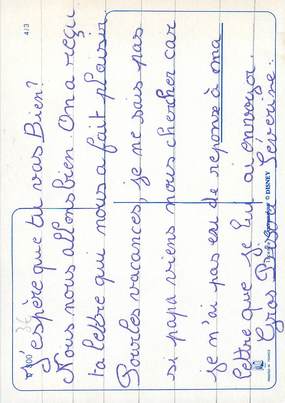 J'espère que tu vas Bien?
Nous nous allons bien. On a reçu
ta lettre qui nous a fait plaisir
Pour les vacances, je ne sais pas
si papa viens nous chercher car
je n'ai pas eu de reponse à ma
lettre que je lui ai envoyer.
Gros Bisous Séverine.
© DISNEY
4/3